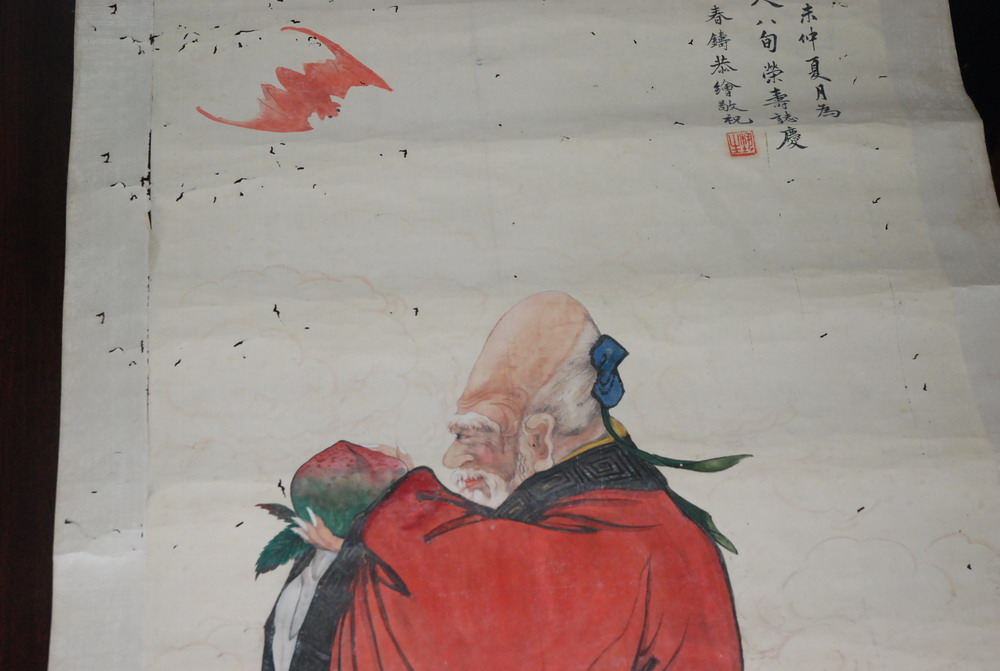 未仲夏月為
八旬榮壽誌慶
春鑄恭繪敬祝